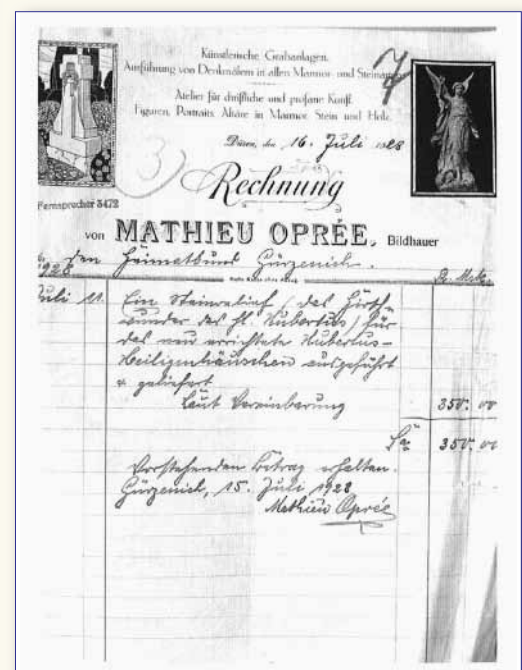 Künstlerische Grabanlagen.
Ausführung von Denkmälern in allen Marmor- und Steinarten
Atelier für christliche und profane Kunst.
Figuren, Portraits, Altäre in Marmor, Stein und Holz.
7
Düren, den 16. Juli 1928
3)
Rechnung
Fernsprecher 3472
von MATHIEU OPRÉE, Bildhauer
den Heimatbund Gürzenich.
1928
R. Mk.
Juli 11. Ein Steinrelief (das
wunder des hl. Hubertus) für
das neu errichtete Hubertus-
Heiligenhäuschen ausgeführt
& geliefert
Laut Vereinbarung 350. 00
Sa 350. 00
Vorstehenden Betrag erhalten.
Gürzenich, 15. Juli 1928
Mathieu Oprée